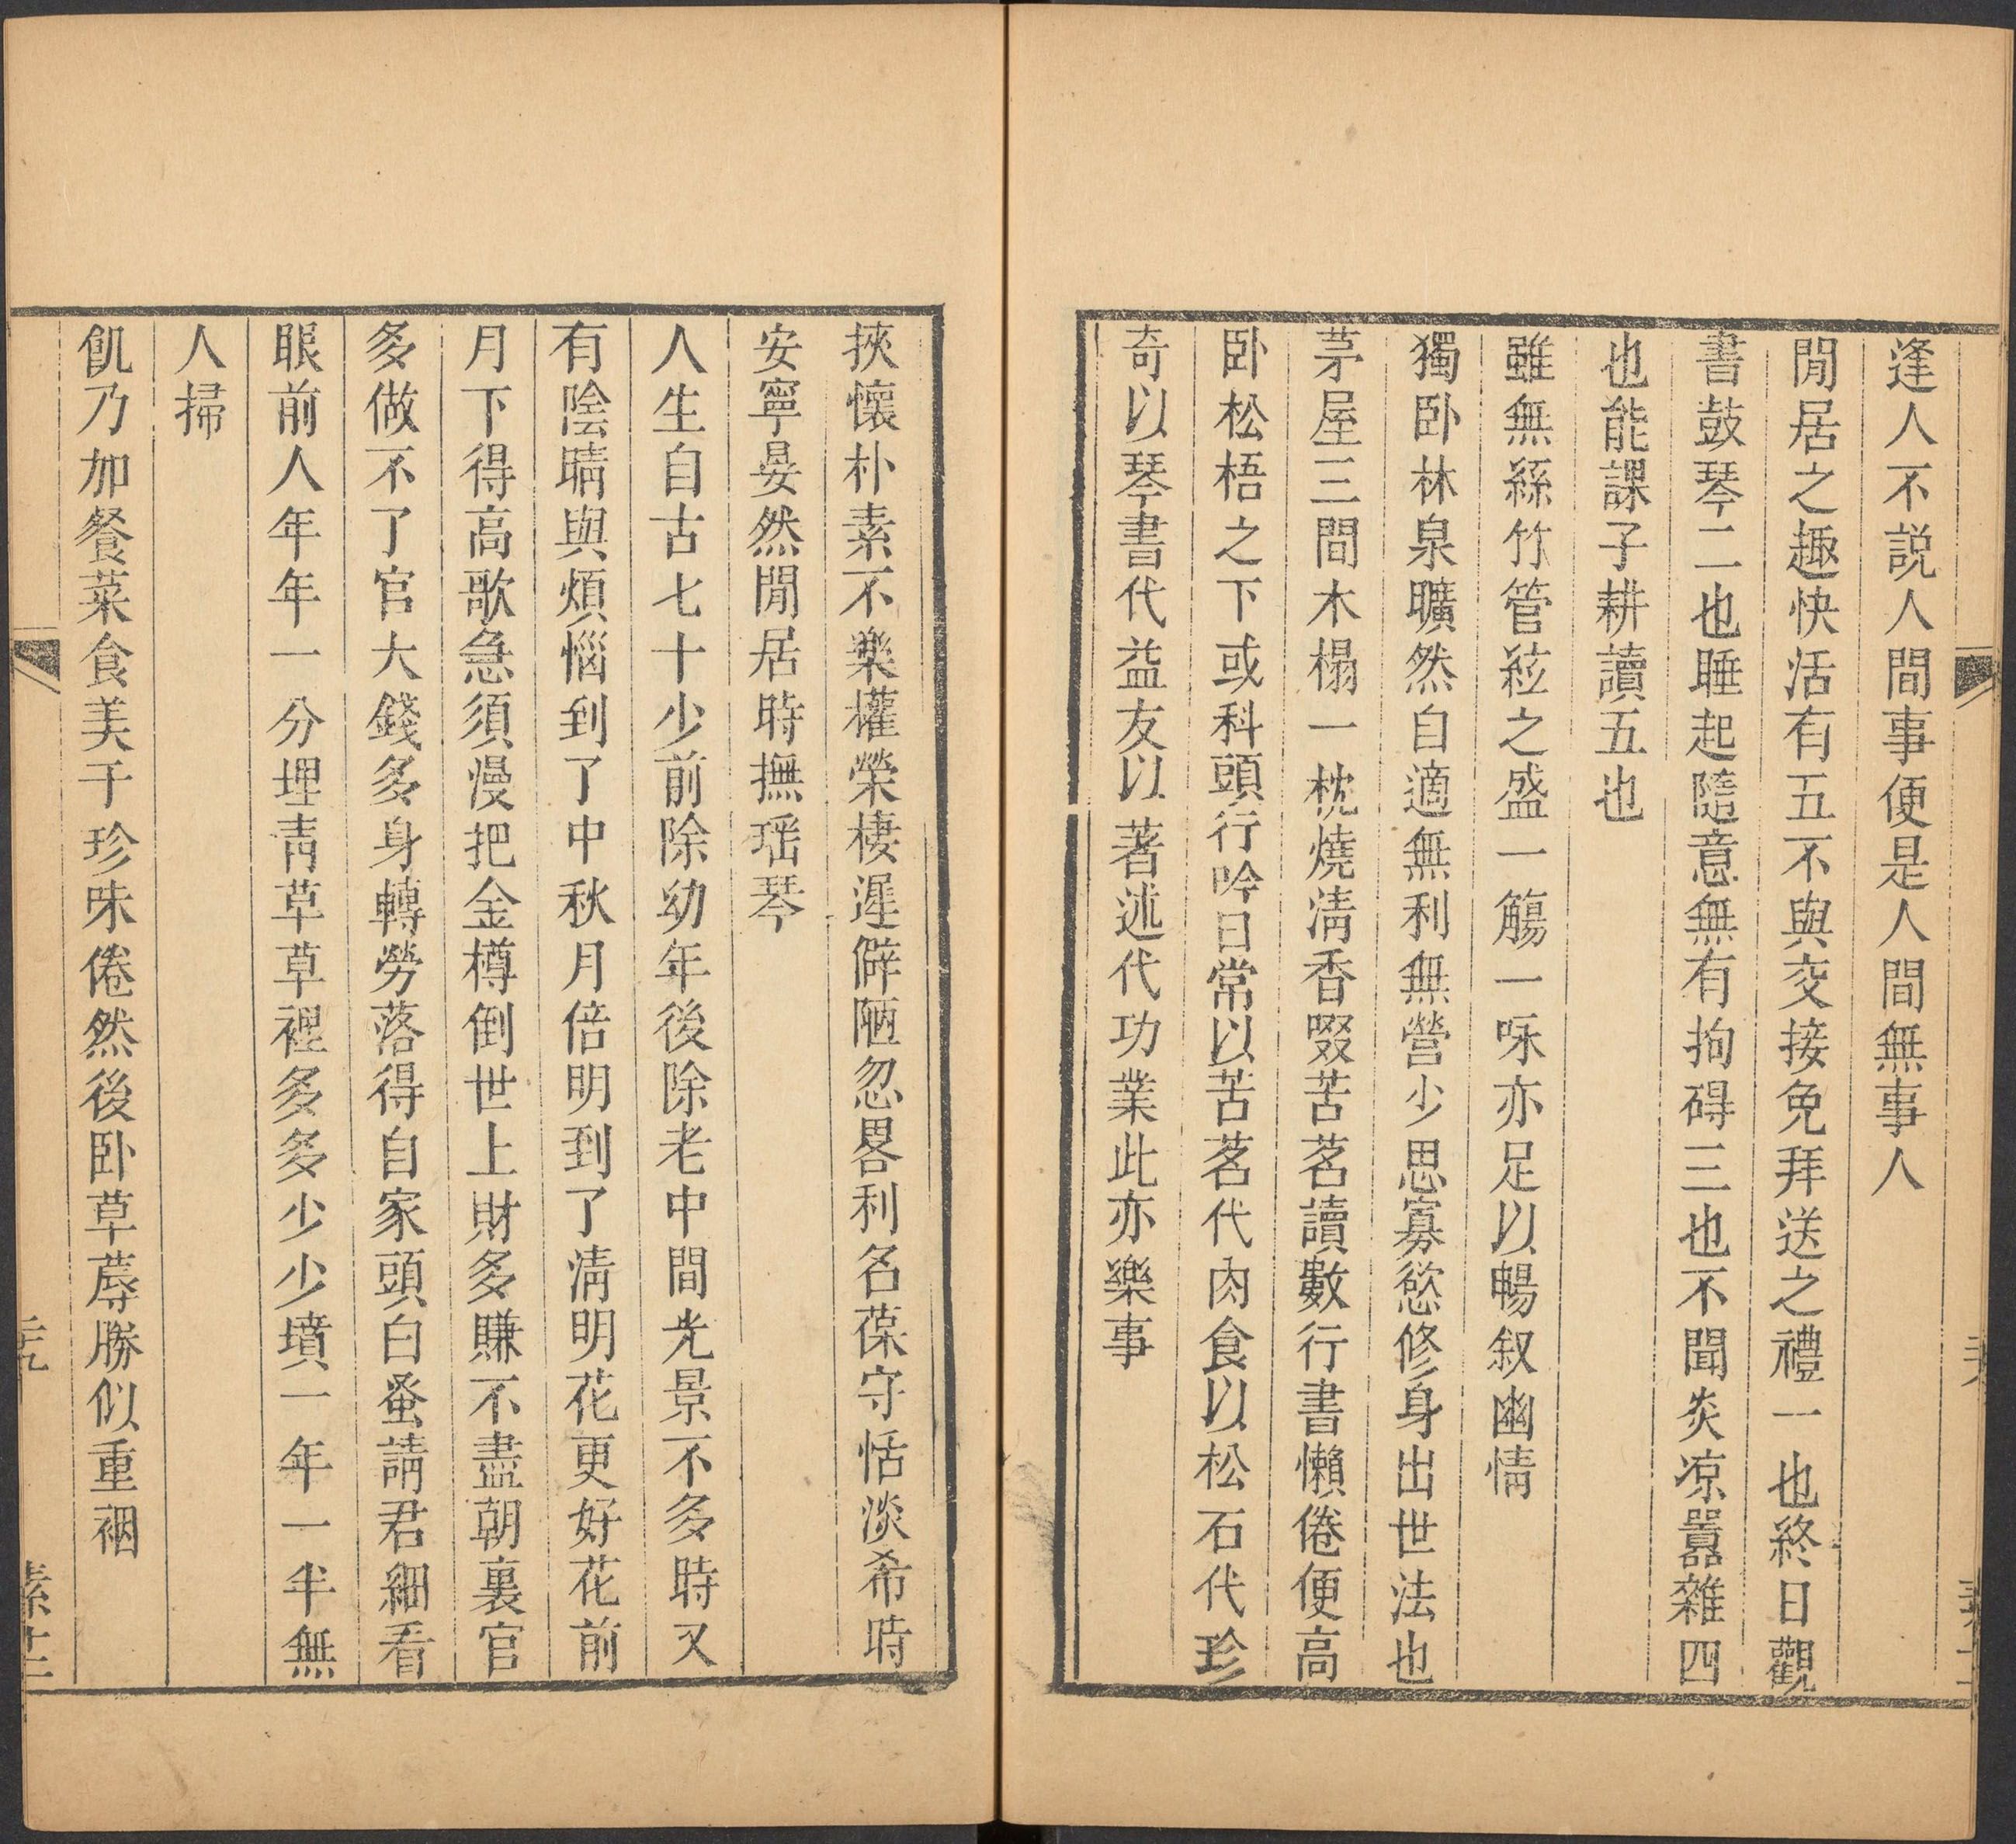 逢人不説人間事便是人間無事人
閒居之趣快活有五不與交接免拜送之禮一也終日觀
書鼓琴二也睡起隨意無有拘碍三也不聞炎凉囂雜四
也能課子耕讀五也
雖無絲竹管絃之盛一觴一咏亦足以暢叙幽情
獨卧林泉曠然自適無利無營少思寡慾修身出世法也
茅屋三間木榻一枕燒清香啜苦茗讀數行書懶倦便高
卧松梧之下或科頭行吟日常以苦茗代肉食以松石代珍
奇以琴書代益友以著述代功業此亦樂事
挾懷朴素不樂權榮棲遲僻陋忽畧利名葆守恬淡希時
安寧晏然閒居時撫瑶琴
人生自古七十少前除幼年後除老中間光景不多時又
有陰晴與煩惱到了中秋月倍明到了清明花更好花前
月下得高歌急須漫把金樽倒世上財多賺不盡朝裏官
多做不了官大錢多身轉勞落得自家頭白蚤請君細看
眼前人年年一分埋青草草裡多多少少墳一年一半無
人掃
飢乃加餐菜食美于珍味倦然後卧草蓐勝似重裀